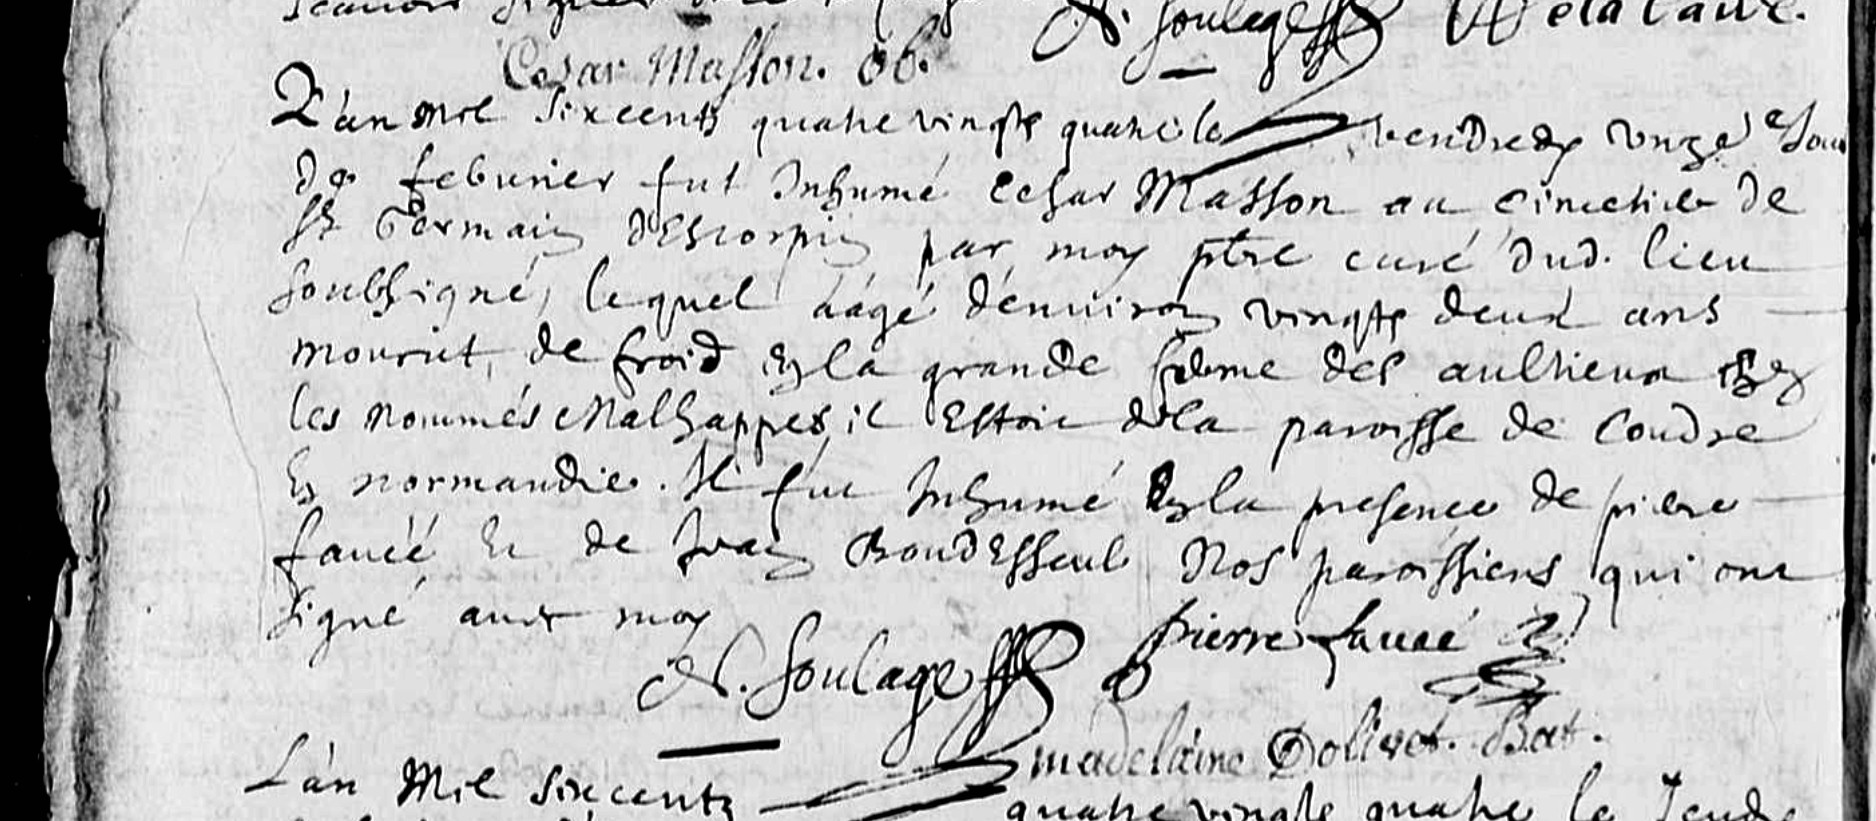 A. Soulage De la Caue.
Cesar Masson. ob.
L'an mil sixcents quatrevingts quatre le vendredy unze.e Jour
de feburier fut Inhumé Cesar Masson au cimetiere de
St Germain d'Escorpain par moy ptre curé dud. lieu
soubsigné, lequel aagé d'enuiron vingts deux ans
mourut de froid en la grande ferme des aulthieux chez
les nommés Malhappes, il Estoit de la paroisse de Coudre
En normandie. Il fut Inhumé En la presence de pierre
fauée Et de Jean BoudEsseul Nos paroissiens qui ont
signé auec moy
A. Soulage pierre fauée
madelaine Doliuet. Bat.
L'an Mil sixcents quatrevingts quatre le Jeudy